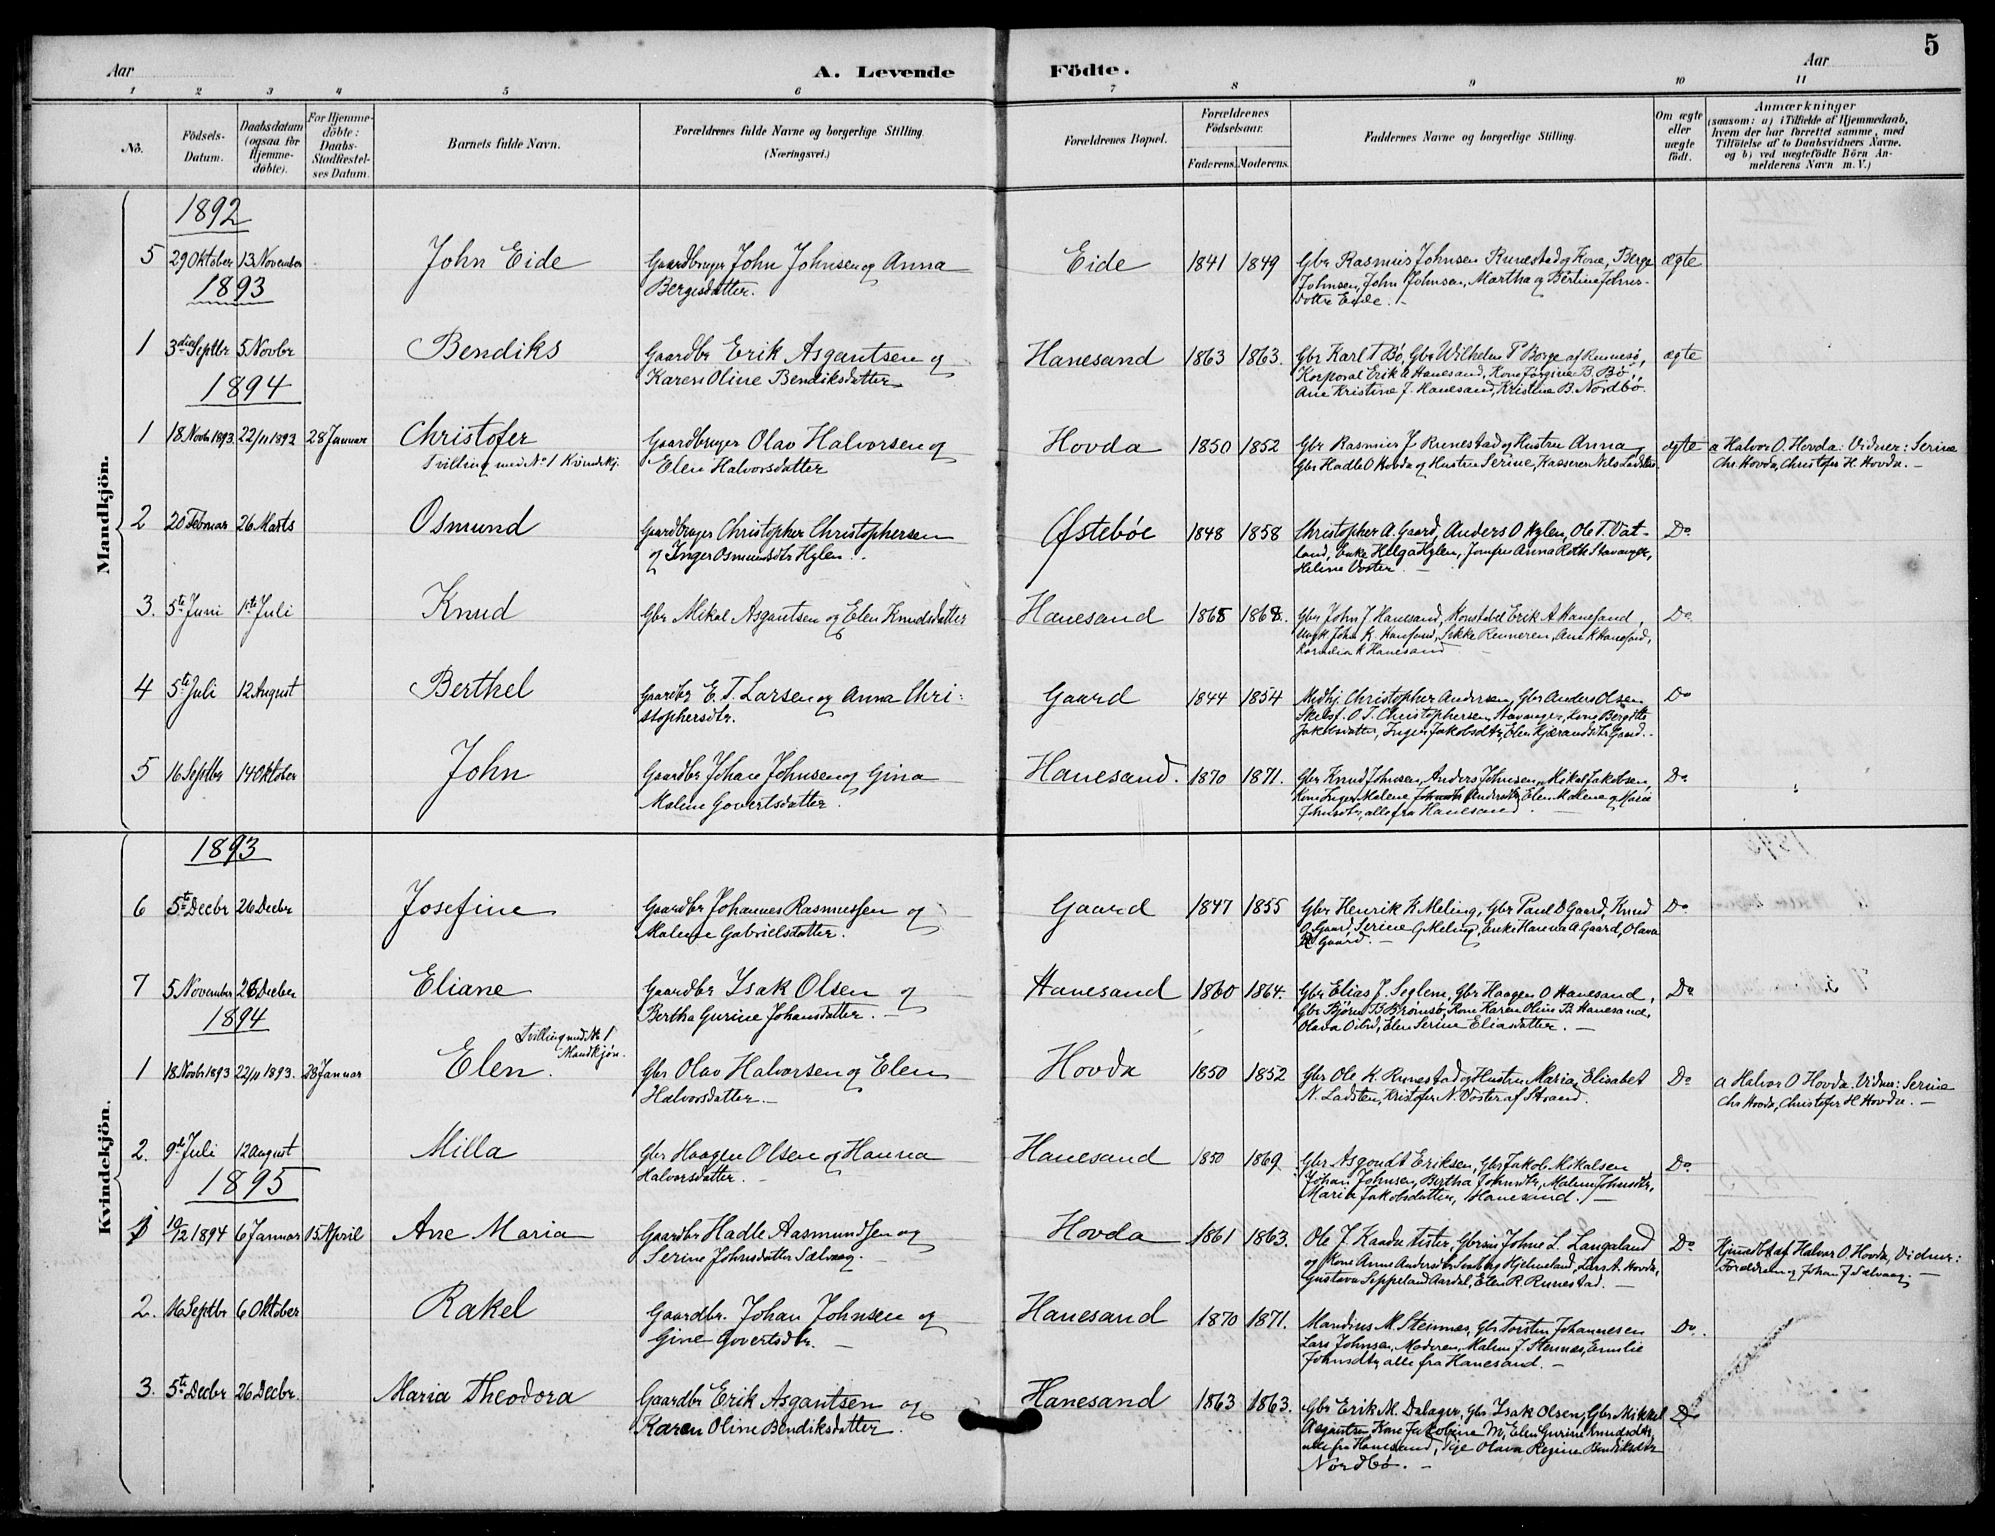 5
Aar A. Levende Födte. Aar
1 2 3 4 5 6 7 8 9 10 11
Nö. Födsels-Datum. Daabsdatum (ogsaa for Hjemme-döbte). For Hjemme-döbte: Daabs-Stadfæstel-ses Datum. Barnets fulde Navn. Forældrenes fulde Navne og borgerlige Stilling. (Næringsvei.) Forældrenes Bopæl. Forældrenes Födselsaar. Faderens. Moderens. Faddernes Navne og borgerlige Stilling. Om ægte eller uægte födt. Anmærkninger (saasom: a) i Tilfælde af Hjemmedaab, hvem der har forrettet samme, med Tilföielse af to Daabsvidners Navne, og b) ved uægtefödte Börn An-melderens Navn m. V.)
Mandkjön.
1892
5 29 Oktober 13 November John Eide Gaardbruger John Johnsen og Anna Eide 1841 1849 Gbr Rasmus Johnsen Runestad og Kone, Berge ægte
Bergesdatter. Johnsen, John Johnsen, Martha og Bertine Johns-
dottre Eide. -
1893
1 3die Septbr 5 Novbr Bendiks Gaardbr Erik Asgautsen og Hanesand 1863 1863. Gbr Karl T Bø, Gbr Wilhelm P Borge af Rennesø, ægte
Karen Oline Bendiksdatter Korporal Erik A Hanesand, Kone Jørgine B. Bø,
Ane Kristine J. Hanesand, Kristine B. Nordbø.
1894
1 18 Novbr 1893. 22/11 1893 28 Januar Christofer Gaardbruger Olav Halvorsen og Hovda 1850 1852 Gbr Rasmus J Runestad og Hustru Anna ægte a Halvor O. Hovda: Vidner: Serine
Tvilling med No 1 Kvindekj. Elen Halvorsdatter Gbr Hadle O Hovda og Hustru Serine, Kasserer Nils Ladsten Chr Hovda, Christofer H. Hovda. -
2 20 Februar 26 Marts Osmund Gaardbruger Christopher Christophersen Østebøe 1848 1858 Christopher A. Gaard, Anders O Hylen, Ole T. Vat- Do
og Inger Osmundsdtr Hylen. land, Enke Helga Hylen, Jomfru Anna Roth Stavanger,
Heline Voster. -
3. 5te Juni 1ste Juli Knud Gbr Mikal Asgautsen og Elen Knudsdatter Hanesand 1868 1868. Gbr John J Hanesand, Konstabel Erik A Hanesand, Do
Ungk. John K. Hanesand, Sikke Renneren, Ane K Hanesand,
Kornelia K Hanesand
4 5te Juli 12 August Berthel Gaardbr E. T. Larsen og Anna Chri- Gaard 1844 1854 Medhj. Christopher Andersen, Gbr Anders Olsen Do
stophersdtr. O. T. Christophersen, Stavanger, Kone Bergitte
Jakobsdatter, Inger Jakobsdtr, Elen Kjærandsdtr Gaard.
5 16 Septbr 14 Oktober John Gaardbr Johan Johnsen og Gina Hanesand. 1870 1871. Gbr Knud Johnsen, Anders Johnsen, Mikal Jakobsen, Do
Malene Govertsdatter. Kone Inger Malene Andersdtr, Elen Malene og Maria
Johnsdtr, alle fra Hanesand.
Kvindekjön.
1893
6 5te Decbr 26 Decbr Josefine Gaardbr Johannes Rasmussen og Gaard 1847 1855 Gbr Henrik K Meling, Gbr Paul D Gaard, Knud Do
Malene Gabrielsdatter. O. Gaard, Serine G Meling, Enke Hanna A Gaard, Olava
Gaard. -
7 5 November 26 Decbr Eliane Gaardbr Isak Olsen og Hanesand 1860 1864. Gbr Elias J. Seglem, Gbr Haagen O Hanesand, Do
Bertha Gurine Johansdatter. - Gbr Bjørn B Bromsø, Kone Karen Oline B. Hanesand,
Olava Eilrd, Elen Serine Eliasdatter. -
1894
Tvilling med No 1
Mandkjøn.
1 18 Novbr 1893 22/11 1893. 28 Januar Elen. Gbr Olav Halvorsen og Elen Hovda 1850 1852 Gbr Ole K. Runestad og Hustru Maria Elisabet Do a Halvor O Hovda. Vidner: Serine
Halvorsdatter. - N. Ladsten, Kristofer N. Voster af Strand. Chr Hovda, Christofer H Hovda. -
2. 9de Juli 12 August Milla Gbr Haagen Olsen og Hanna Hanesand 1850 1869. Gbr Asgoudt Eriksen, Gbr Jakob Mikalsen Do
Halvorsdatter. - Johan Johnsen, Bertha Johnsdtr, Malene Johnsdtr,
Maria Jakobsdatter, Hanesand. -
1895
1 10/2 1894 6 Januar 15 April Ane Maria Gaardbr Hadle Aasmundsen og Hovda 1861 1863. Ole J. Kaada Fister, Gbr Johne L. Langaland Do Hjemedbt af Halvor O. Hovda, Vidner:
Serine Johnsdatter Sælvaag. og Kone Anne Andersdtr Hjelmeland, Lars A. Hovda, Forældrene og Johan J Sælvaag. -
Gustava Seppeland Aardal, Elen R. Runestad. -
2. 16 Septbr 6 Oktober Rakel Gaardbr. Johan Johnsen og Hanesand 1870 1871. Mandius M. Steinnes, Gbr Torsten Johannesen Do.
Gine Govertsdtr. - Lars Johnsen, Moderen, Malene J. Stennes, Emilie
Johnsdtr, alle fra Hanesand. -
3. 5te Decbr 26 Decbr. Maria Theodora Gaardbr Erik Asgautsen og Hanesand 1863 1863. Gbr Erik M. Dalager, Gbr Isak Olsen, Gbr Mikkel Do
Karen Oline Bendiksdatter. Asgautsen, Kone Jakobine M, Elen Gurine Knudsdtr,
alle fra Hanesand, Pige Olava Regine Bendiksdtr
Nordbø. -